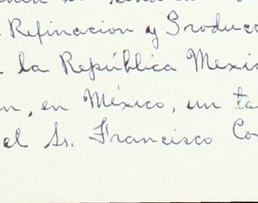 Refinacion y Producc
la República Mexi
en, en México, un ta
el Sr. Francisco Co